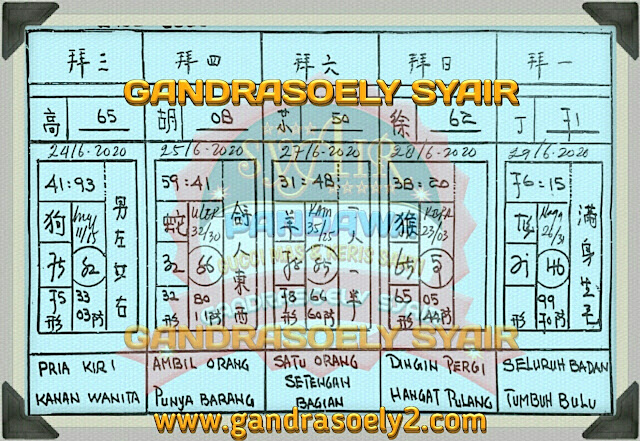 拜三 拜四 拜六 拜日 拜一
GANDRASOELY SYAIR
高 65 胡 08 50 徐 62 丁 71
24/6-2020 25/6-2020 27/6-2020 28/6-2020 29/6-2020
41:93 59:41 31:48 38:20 76:15
狗 11/15 男左女右
蛇 ULER 32/30 拿人東西
羊 KAM 35/25 一人一半
猴 KERA 23/03
Naga 26/31 滿身生毛
SYAIR
PANDAWA
75 82 32 66 78 85 65 21 46
75 33 32 80 78 66 65 05 99
形 70阴 形 11阴 形 60阴 形 44阴 形
GANDRASOELY SYAIR
PRIA KIRI
KANAN WANITA
AMBIL ORANG
PUNYA BARANG
SATU ORANG
SETENGAH
BAGIAN
DINGIN PERGI
HANGAT PULANG
SELURUH BADAN
TUMBUH BULU
www.gandrasoely2.com